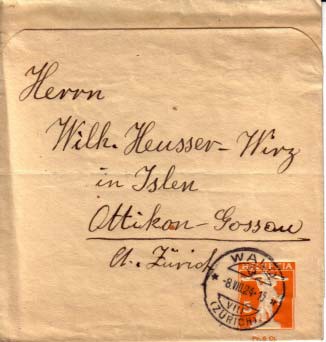 Herrn
Wilh. Heusser-Wirz
in Islen
Ottikon-Gossau
Ct. Zürich
WALD
-8.VIII.24.-
(ZÜRICH)
HELVETIA
5